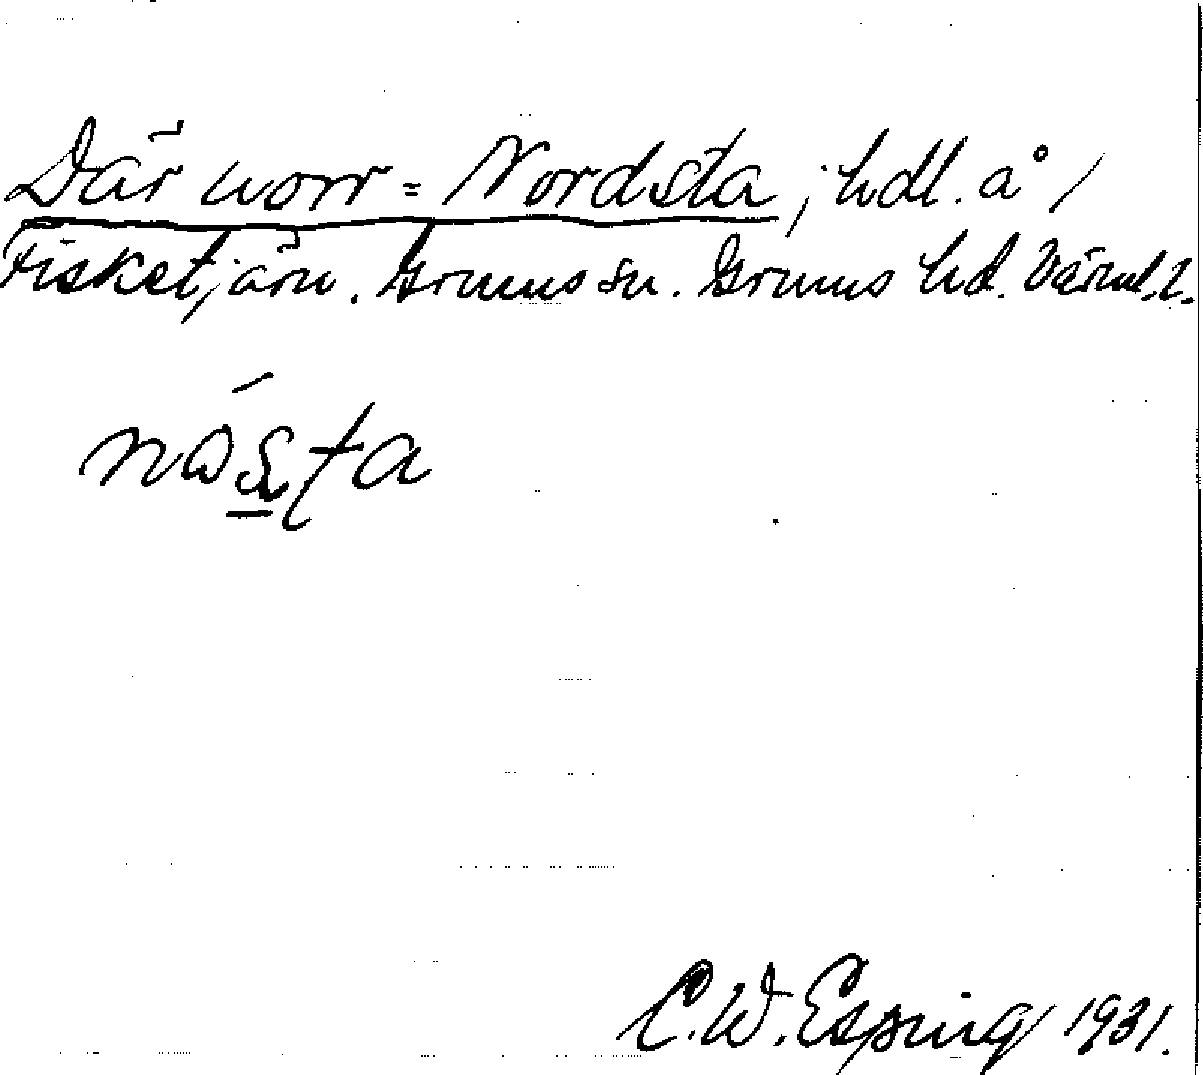 Där norr = Nordsta, hdl. å /
Fisketjärn. Grums sn. Grums hd. Värml. l.
nåsta
C.W. Esping 1931.